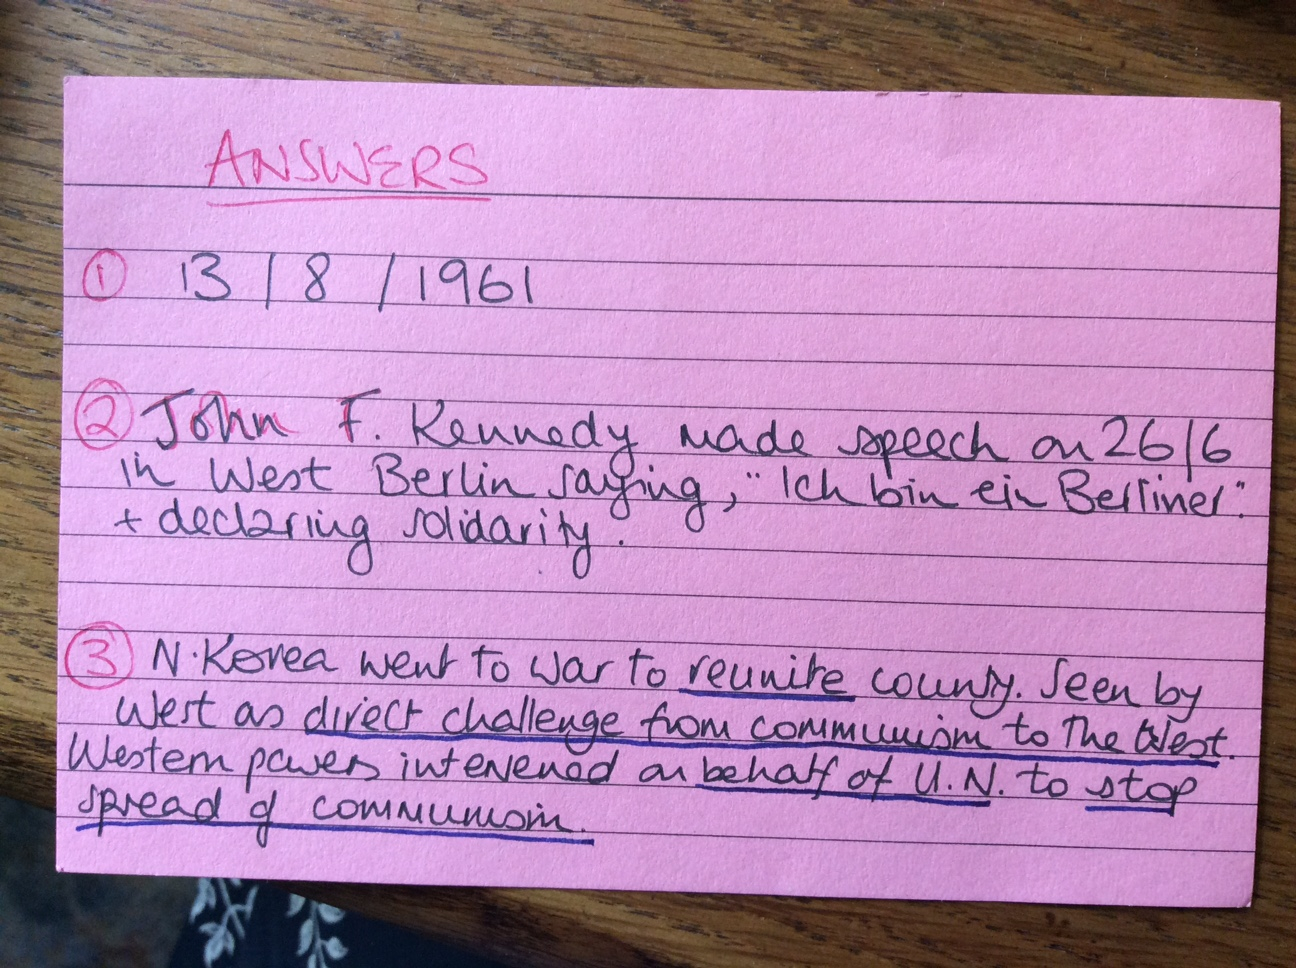 ANSWERS
① 13/8/1961
② John F. Kennedy made speech on 26/6
in West Berlin saying, "Ich bin ein Berliner".
+ declaring solidarity.
③ N. Korea went to war to reunite county. Seen by
West as direct challenge from communism to The West.
Western powers intervened on behalf of U.N. to stop
spread of communism.